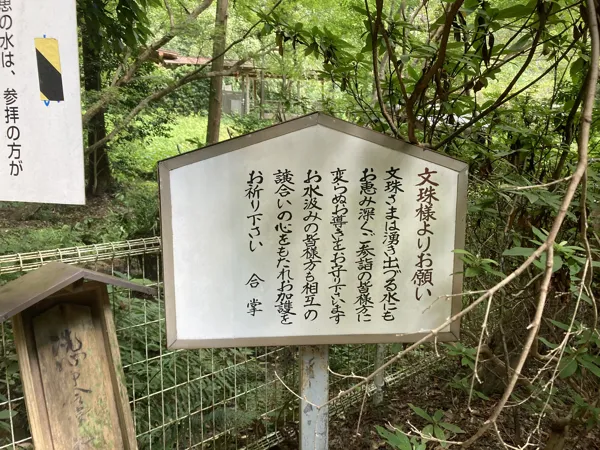 文珠様よりお願い
文珠さまは湧き出づる水にも
お恵み深く、ご参詣の皆様方に
変らぬお導きをお守り下います
お水汲みの皆様方も相互の
譲合いの心をもたれお加護を
お祈り下さい　合掌
の水は、参拝の方が